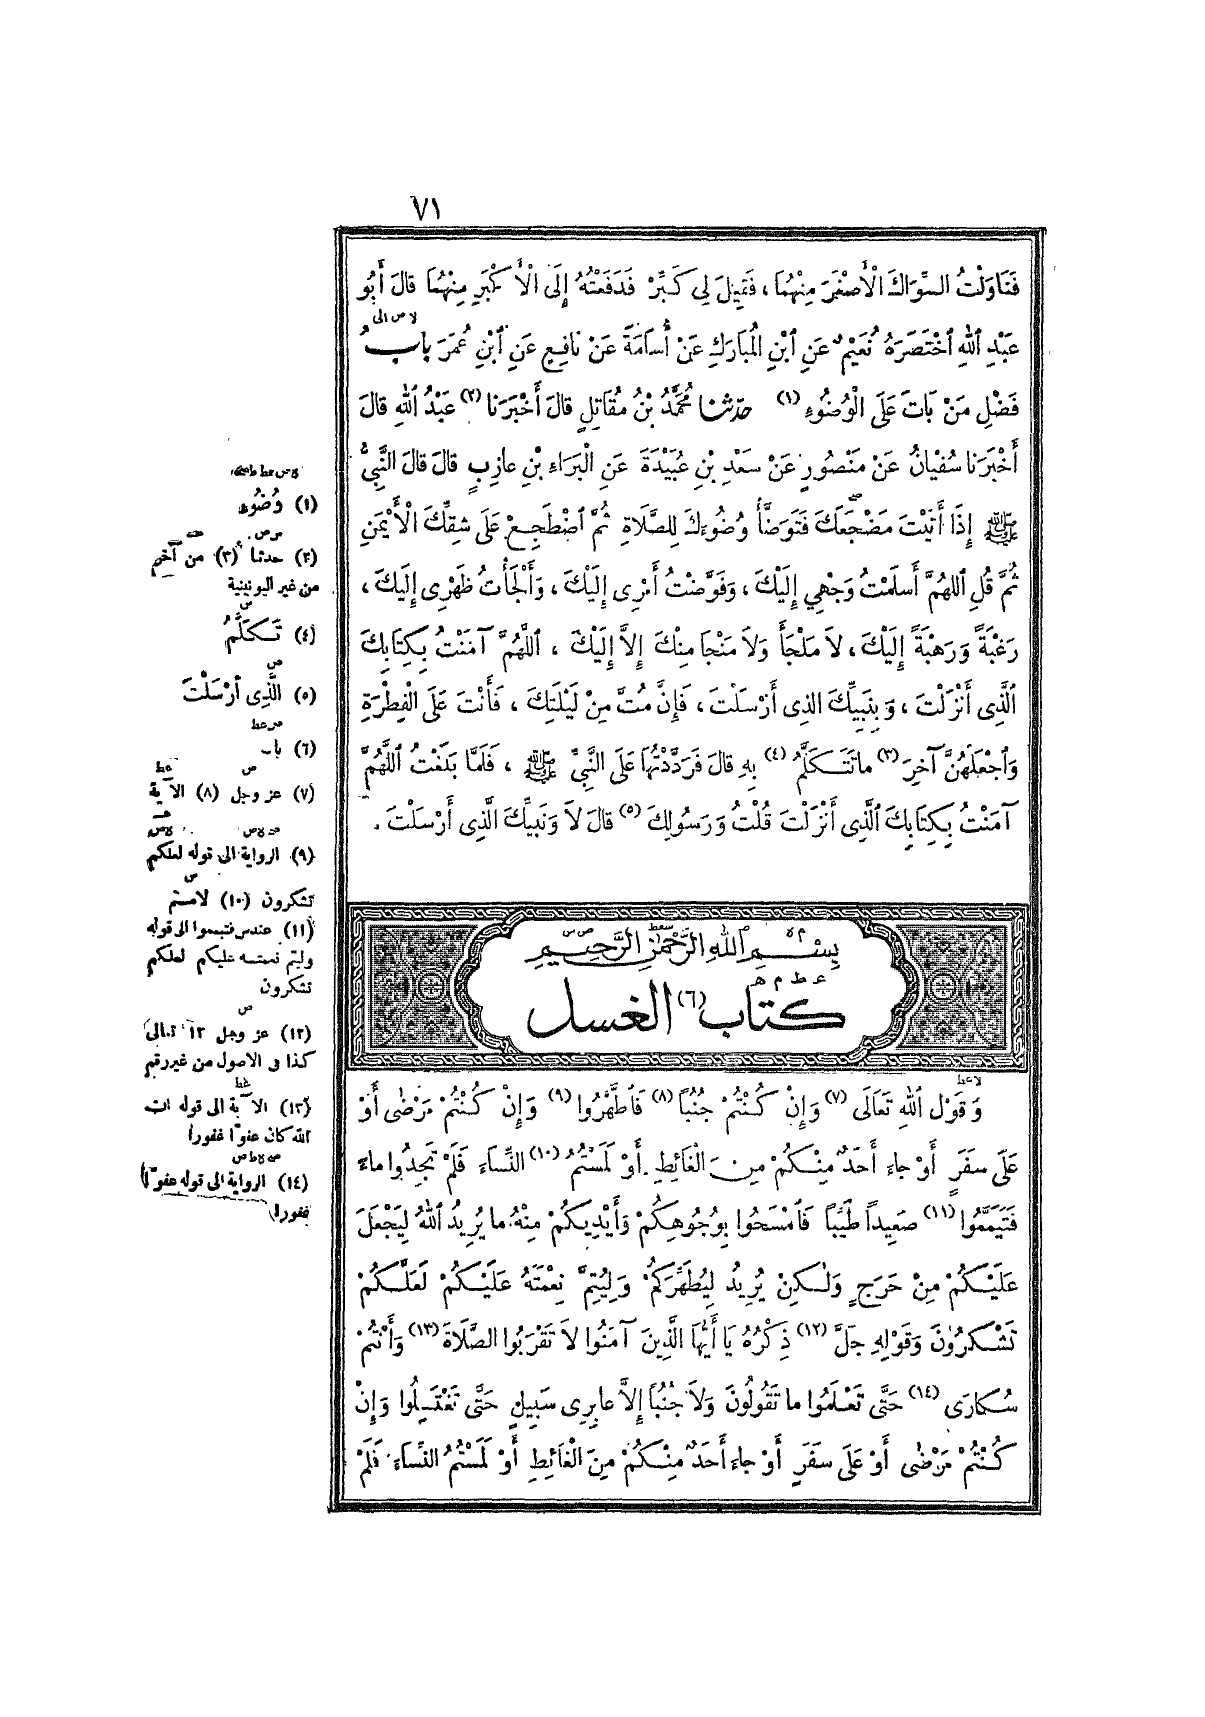 ٧١
فَنَاوَلْتُ السِّوَاكَ الْأَصْغَرَ مِنْهُمَا ، فَقِيلَ لِي كَبِّرْ فَدَفَعْتُهُ إِلَى الْأَكْبَرِ مِنْهُمَا قالَ أَبُو
لا ص الى
عَبْدِ اللهِ اخْتَصَرَهُ نُعَيْمٌ عَنِ ابْنِ الْمُبَارَكِ عَنْ أُسَامَةَ عَنْ نَافِعٍ عَنِ ابْنِ عُمَرَ بابُ
فَضْلِ مَنْ بَاتَ عَلَى الْوُضُوءِ (١) حدّثنا مُحَمَّدُ بْنُ مُقَاتِلٍ قالَ أَخْبَرَنَا (٢) عَبْدُ اللهِ قالَ
أَخْبَرَنَا سُفْيَانُ عَنْ مَنْصُورٍ عَنْ سَعْدِ بْنِ عُبَيْدَةَ عَنِ الْبَرَاءِ بْنِ عازِبٍ قالَ قالَ النَّبِيُّ
ﷺ إِذَا أَتَيْتَ مَضْجَعَكَ فَتَوَضَّأْ وُضُوءَكَ لِلصَّلَاةِ ثُمَّ اضْطَجِعْ عَلَى شِقِّكَ الْأَيْمَنِ
ثُمَّ قُلِ اللهُمَّ أَسْلَمْتُ وَجْهِي إِلَيْكَ ، وَفَوَّضْتُ أَمْرِى إِلَيْكَ ، وَأَلْجَأْتُ ظَهْرِى إِلَيْكَ ،
رَغْبَةً وَرَهْبَةً إِلَيْكَ ، لاَ مَلْجَأَ وَلاَ مَنْجَا مِنْكَ إِلاَّ إِلَيْكَ ، اللَّهُمَّ آمَنْتُ بِكِتَابِكَ
الَّذِى أَنْزَلْتَ ، وَبِنَبِيِّكَ الذِى أَرْسَلْتَ ، فَإِنْ مُتَّ مِنْ لَيْلَتِكَ ، فَأَنْتَ عَلَى الْفِطْرَةِ
وَاجْعَلْهُنَّ آخِرَ (٣) ماتَتَكَلَّمُ (٤) بِهِ قالَ فَرَدَّدْتُهَا عَلَى النَّبِيِّ ﷺ ، فَلَمَّا بَلَغْتُ اللَّهُمَّ
آمَنْتُ بِكِتَابِكَ الَّذِى أَنْزَلْتَ قُلْتُ وَرَسُولِكَ (٥) قالَ لاَ وَنَبِيِّكَ الَّذِى أَرْسَلْتَ .
بِسْمِ اللهِ الرَّحْمٰنِ الرَّحِيمِ
كتاب (٦) الغسل
وَقَوْلِ اللهِ تَعَالَى (٧) وَإِنْ كُنْتُمْ جُنُبًا (٨) فَاطَّهَّرُوا (٩) وَإِنْ كُنْتُمْ مَرْضٰى أَوْ
عَلَى سَفَرٍ أَوْ جاءَ أَحَدٌ مِنْكُمْ مِنَ الْغَائِطِ أَوْ لَمَسْتُمُ (١٠) النِّسَاءَ فَلَمْ تَجِدُوا ماءً
فَتَيَمَّمُوا (١١) صَعِيداً طَيِّبًا فَامْسَحُوا بِوُجُوهِكُمْ وَأَيْدِيكُمْ مِنْهُ ما يُرِيدُ اللهُ لِيَجْعَلَ
عَلَيْكُمْ مِنْ حَرَجٍ وَلٰكِنْ يُرِيدُ لِيُطَهِّرَكُمْ وَلِيُتِمَّ نِعْمَتَهُ عَلَيْكُمْ لَعَلَّكُمْ
تَشْكُرُونَ وَقَوْلِهِ جَلَّ (١٢) ذِكْرُهُ يَا أَيُّهَا الَّذِينَ آمَنُوا لاَ تَقْرَبُوا الصَّلاَةَ (١٣) وَأَنْتُمْ
سُكَارَى (١٤) حَتَّى تَعْلَمُوا ما تَقُولُونَ وَلاَ جُنُبًا إِلاَّ عابِرِى سَبِيلٍ حَتَّى تَغْتَسِلُوا وَإِنْ
كُنْتُمْ مَرْضٰى أَوْ عَلَى سَفَرٍ أَوْ جاءَ أَحَدٌ مِنْكُمْ مِنَ الْغَائِطِ أَوْ لَمَسْتُمُ النِّسَاءَ فَلَمْ
(١) وُضُوءٍ
(٢) حدثنا (٣) من آخِرِ
من غير اليونينية
ص
(٤) تَكَلَّمُ
ص
(٥) الَّذِى أرْسَلْتَ
ص عط
(٦) باب
(٧) عز وجل (٨) الآية
(٩) الرواية الى قوله لعلكم
تشكرون (١٠) لامستم
(١١) عند س فتيمموا الى قوله
وليتم نعمته عليكم لعلكم
تشكرون
ص
(١٢) عز وجل ١٢ تعالى
كذا فى الاصول من غير رقم
(١٣) الآية الى قوله ان
الله كان عفوّا غفورا
(١٤) الرواية الى قوله عفوّا
غفورا